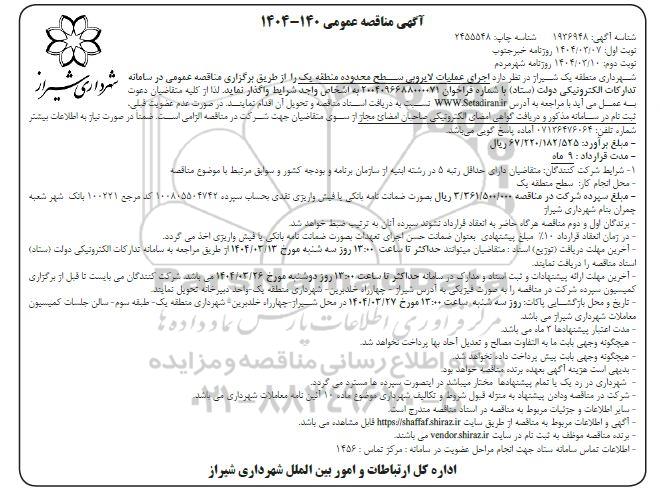 آگهی مناقصه عمومی ۱۴۰-۱۴۰۴
شناسه آگهی: ۱۹۳۶۹۴۸ شناسه چاپ: ۲۴۵۵۵۴۸
نوبت اول: ۱۴۰۴/۰۳/۰۷ روزنامه خبرجنوب
نوبت دوم: ۱۴۰۴/۰۳/۱۰ روزنامه شهرمردم
شهرداری شیراز
شهرداری منطقه یک شیراز در نظر دارد اجرای عملیات لایروبی سطح محدوده منطقه یک را از طریق برگزاری مناقصه عمومی در سامانه
تدارکات الکترونیکی دولت (ستاد) با شماره فراخوان ۲۰۰۴۰۹۶۶۸۸۰۰۰۰۷۱ به اشخاص واجد شرایط واگذار نماید. لذا از کلیه متقاضیان دعوت
به عمل می آید با مراجعه به آدرس www.Setadiran.ir نسبت به دریافت اسناد مناقصه و تحویل آن اقدام نمایند. در صورت عدم عضویت قبلی،
ثبت نام در سامانه مذکور و دریافت گواهی امضای الکترونیکی صاحبان امضائ مجاز از سوی متقاضیان جهت شرکت در مناقصه الزامی است. ضمناً در صورت نیاز به اطلاعات بیشتر
شماره تلفن: ۰۷۱۳۶۴۷۶۰۶۴ آماده پاسخ گویی می‌باشد.
- مبلغ برآورد: ۶۷/۲۲۰/۱۸۲/۵۲۵ ریال
- مدت قرارداد : ۹ ماه
۱- شرایط شرکت کنندگان: متقاضیان دارای حداقل رتبه ۵ در رشته ابنیه از سازمان برنامه و بودجه کشور و سوابق مرتبط با موضوع مناقصه
- محل انجام کار: سطح منطقه یک
- مبلغ سپرده شرکت در مناقصه ۳/۳۶۱/۵۰۰/۰۰۰ ریال بصورت ضمانت نامه بانکی یا فیش واریزی نقدی بحساب سپرده ۱۰۰۸۰۵۵۰۴۷۴۲ کد مرجع ۱۰۰۲۲۱ بانک شهر شعبه
چمران بنام شهرداری شیراز
- برندگان اول و دوم مناقصه هرگاه حاضر به انعقاد قرارداد نشوند سپرده آنان به ترتیب ضبط خواهد شد.
- در زمان انعقاد قرارداد ۱۰٪ مبلغ پیشنهادی بعنوان ضمانت حسن اجرای تعهدات بصورت ضمانت نامه بانکی یا فیش واریزی اخذ می گردد.
- آخرین مهلت دریافت (توزیع) اسناد : متقاضیان میتوانند حداکثر تا ساعت ۱۳:۰۰ روز سه شنبه مورخ ۱۴۰۴/۰۳/۱۳ از طریق مراجعه به سامانه تدارکات الکترونیکی دولت (ستاد)
اسناد مناقصه را دریافت نمایند.
- آخرین مهلت ارائه پیشنهادات و ثبت اسناد و مدارک در سامانه حداکثر تا ساعت ۱۳:۰۰ روز دوشنبه مورخ ۱۴۰۴/۰۳/۲۶ می باشد. شرکت کنندگان می بایست تا قبل از برگزاری
کمیسیون سپرده شرکت در مناقصه را به صورت فیزیکی به آدرس شیراز - چهارراه خلدبرین- شهرداری منطقه یک-واحد دبیرخانه تحویل نمایند.
- تاریخ و محل بازگشایی پاکات: روز سه شنبه ساعت ۱۳:۰۰ مورخ ۱۴۰۴/۰۳/۲۷ در محل شیراز-چهارراه خلدبرین- شهرداری منطقه یک- طبقه سوم- سالن جلسات کمیسیون
معاملات شهرداری شیراز می باشد.
- مدت اعتبار پیشنهادها ۳ ماه می باشد.
- هیچگونه وجهی بابت ما به التفاوت مصالح و تعدیل آحاد بها پرداخت نخواهد شد.
- هیچگونه وجهی بابت پیش پرداخت داده نخواهد شد.
- بدیهی است هزینه آگهی بعهده برنده مناقصه خواهد بود.
- شهرداری در رد یک یا تمام پیشنهادها مختار میباشد در اینصورت سپرده ها مسترد می گردد.
- شرکت در مناقصه ودادن پیشنهاد به منزله قبول شروط و تکالیف شهرداری موضوع ماده ۱۰ آئین نامه معاملات شهرداری می باشد.
- سایر اطلاعات و جزئیات مربوط به مناقصه در اسناد مناقصه مندرج است.
- آگهی و اطلاعات مربوط به مناقصه از طریق سایت https://shaffaf.shiraz.ir قابل مشاهده می باشد.
- برنده مناقصه موظف به ثبت نام در سایت vendor.shiraz.ir می باشد.
- اطلاعات تماس سامانه ستاد جهت انجام مراحل عضویت در سامانه : مرکز تماس : ۱۴۵۶
اداره کل ارتباطات و امور بین الملل شهرداری شیراز